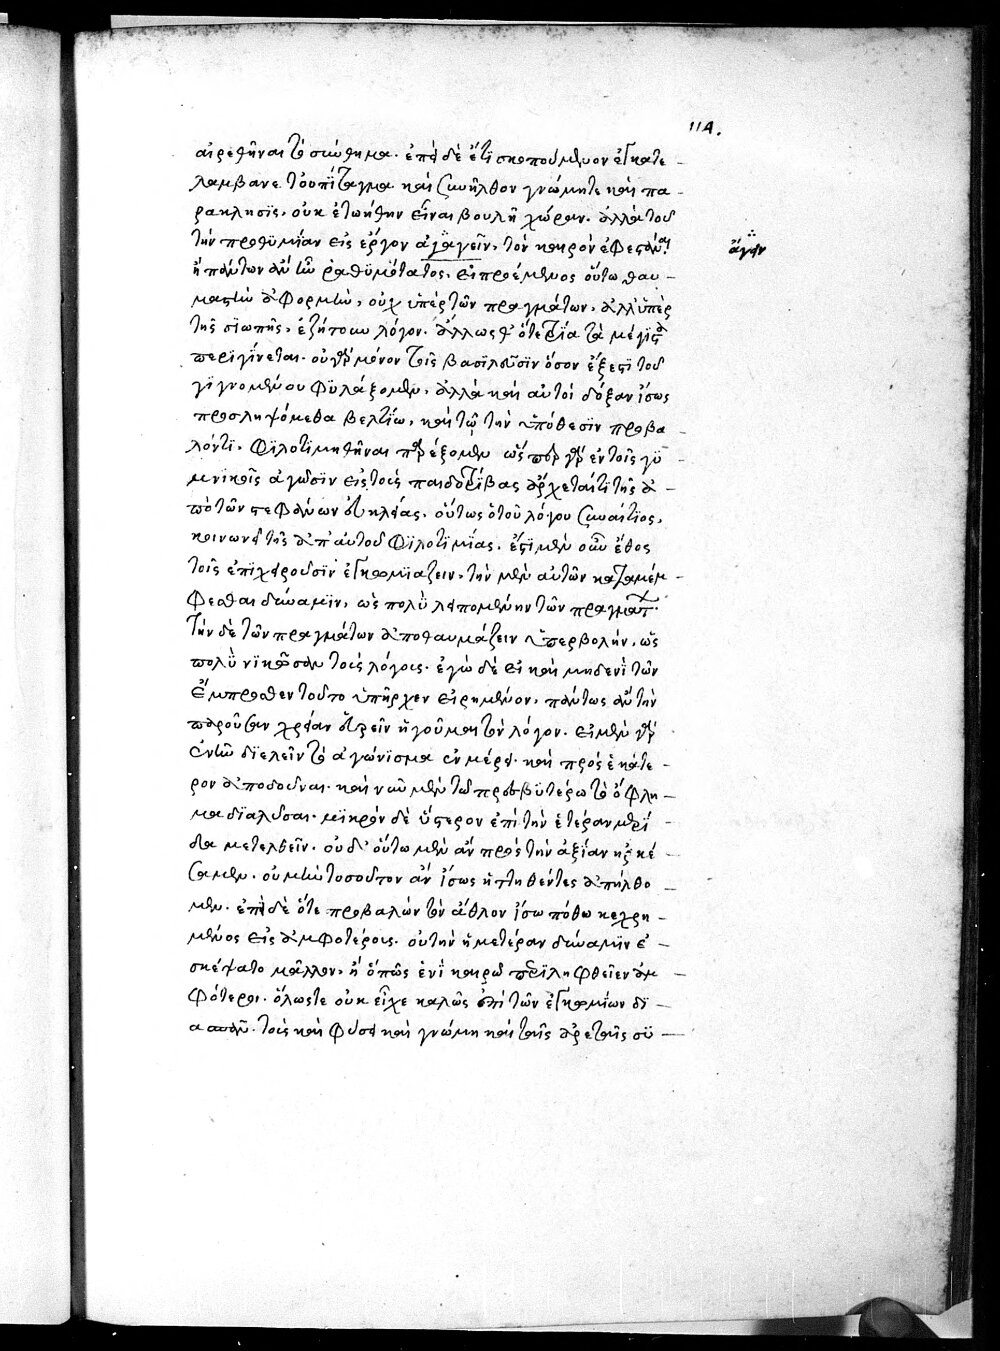 114.
αἱρεθῆναι τὸ σιώπημα. ἐπεὶ δὲ ἔτι σκοπούμενον ἐγκατε-
λάμβανε τοὐπίταγμα καὶ συνῆλθον γνώμη τε καὶ πα-
ράκλησις, οὐκ ἐτωήθην εἶναι βουλῆ χώραν. ἀλλὰ τοῦ
τὴν προθυμίαν εἰς ἔργον ἀγαγεῖν, τὸν καιρὸν ἐφεστάναι.
ἄγειν
ἢ πάντων ἂν ἦν ῥαθυμότατος, εἰ προέμενος οὕτω θαυ-
μαστὴν ἀφορμὴν, οὐχ ὑπὲρ τῶν πραγμάτων, ἀλλ' ὑπὲρ
τῆς σιωπῆς, ἐζήτουν λόγον. ἄλλως θ' ὅτε τρία τὰ μέγιστα
περιγίνεται. οὐ γὰρ μόνον τοῖς βασιλεῦσιν ὅσον ἔξεστι τοῦ
γιγνομένου φυλάξομεν, ἀλλὰ καὶ αὐτοὶ δόξαν ἴσως
προσληψόμεθα βελτίω, καὶ τῷ τὴν ὑπόθεσιν προβα-
λόντι, φιλοτιμηθῆναι παρέξομεν ὥσπερ γὰρ ἐν τοῖς γυ-
μνικοῖς ἀγῶσιν εἰς τοὺς παιδοτρίβας ἔρχεταί τι τῆς ἀ-
πὸ τῶν στεφάνων εὐκλείας, οὕτως ὁ τοῦ λόγου συναίτιος,
κοινωνεῖ τῆς ἀπ' αὐτοῦ φιλοτιμίας. ἔστι μὲν οὖν ἔθος
τοῖς ἐπιχειροῦσιν ἐγκωμιάζειν, τὴν μὲν αὐτῶν καταμέμ-
φεσθαι δύναμιν, ὡς πολὺ λειπομένην τῶν πραγμάτων.
τὴν δὲ τῶν πραγμάτων ἀποθαυμάζειν ὑπερβολήν, ὡς
πολὺ νικῶσαν τοὺς λόγους. ἐγὼ δὲ εἰ καὶ μηδενὶ τῶν
ἔμπροσθεν τοῦτο ὑπῆρχεν εἰρημένον, πάντως ἂν τὴν
παροῦσαν χρείαν εὑρεῖν ἡγοῦμαι τὸν λόγον. εἰ μὲν γὰρ
ἐνῆν διελεῖν τὸ ἀγώνισμα ἐν μέρει. καὶ πρὸς ἑκάτε-
ρον ἀποδοῦναι. καὶ νῦν μὲν τῷ πρεσβυτέρω τὸ ὄφλη-
μα διαλῦσαι. μικρὸν δὲ ὕστερον ἐπὶ τὴν ἑτέραν μερί-
δα μετελθεῖν. οὐδ' οὕτω μὲν ἂν πρὸς τὴν ἀξίαν ἠρκέ-
σαμεν. οὐ μὴν τοσοῦτον ἂν ἴσως ἡττηθέντες ἀπήλθο-
μεν. ἐπεὶ δὲ ὅτε προβαλὼν τὸν ἆθλον ἴσω πόθω κεχρη-
μένος εἰς ἀμφοτέρους. οὐ τὴν ἡμετέραν δύναμιν ἐ-
σκέψατο μᾶλλον, ἢ ὅπως ἑνὶ καιρῷ περιληφθεῖεν ἀμ-
φότεροι. ὅλως τε οὐκ εἶχε καλῶς ἐπὶ τῶν ἐγκωμίων δι-
ασπᾶν. τοὺς καὶ φύσει καὶ γνώμη καὶ ταῖς ἀρεταῖς συ-